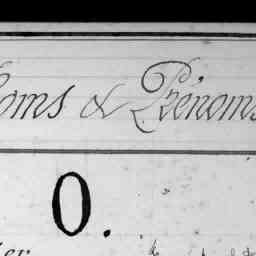 oms & Prénoms
O.